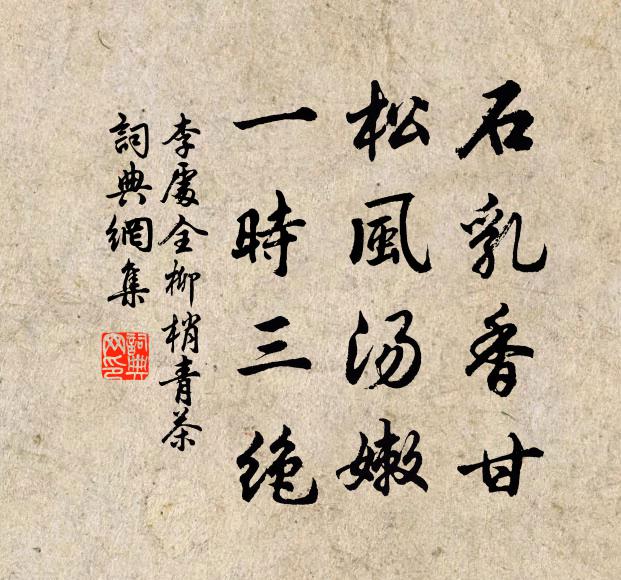 石乳香甘
松風湯嫩
一時三絶
李處全柳梢青茶
詞典網集
詞典網印